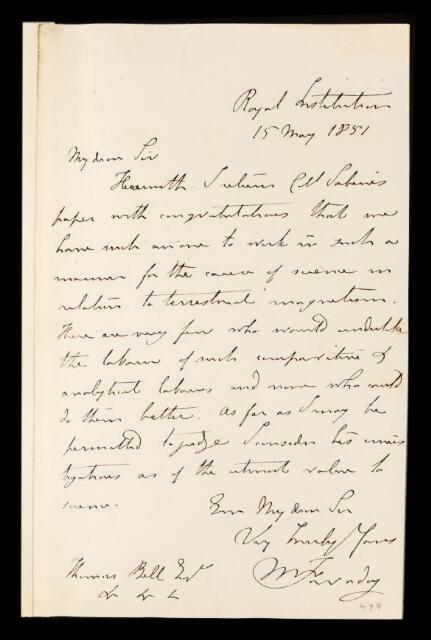 Royal Institution
15 May 1851
My dear Sir
Herewith I return Col Sabine's
paper with congratulations that we
have such an one to work in such a
manner for the cause of science in
relation to terrestrial magnetism.
There are very few who would undertake
the labour of such comparitive &
analytical labours and none who could
do them better. As far as I may be
permitted to judge I consider his inves
tigations as of the utmost value to
science.
Ever My dear Sir
Very Truly Yours
M Faraday
Thomas Bell Esqr
&c &c &c
479